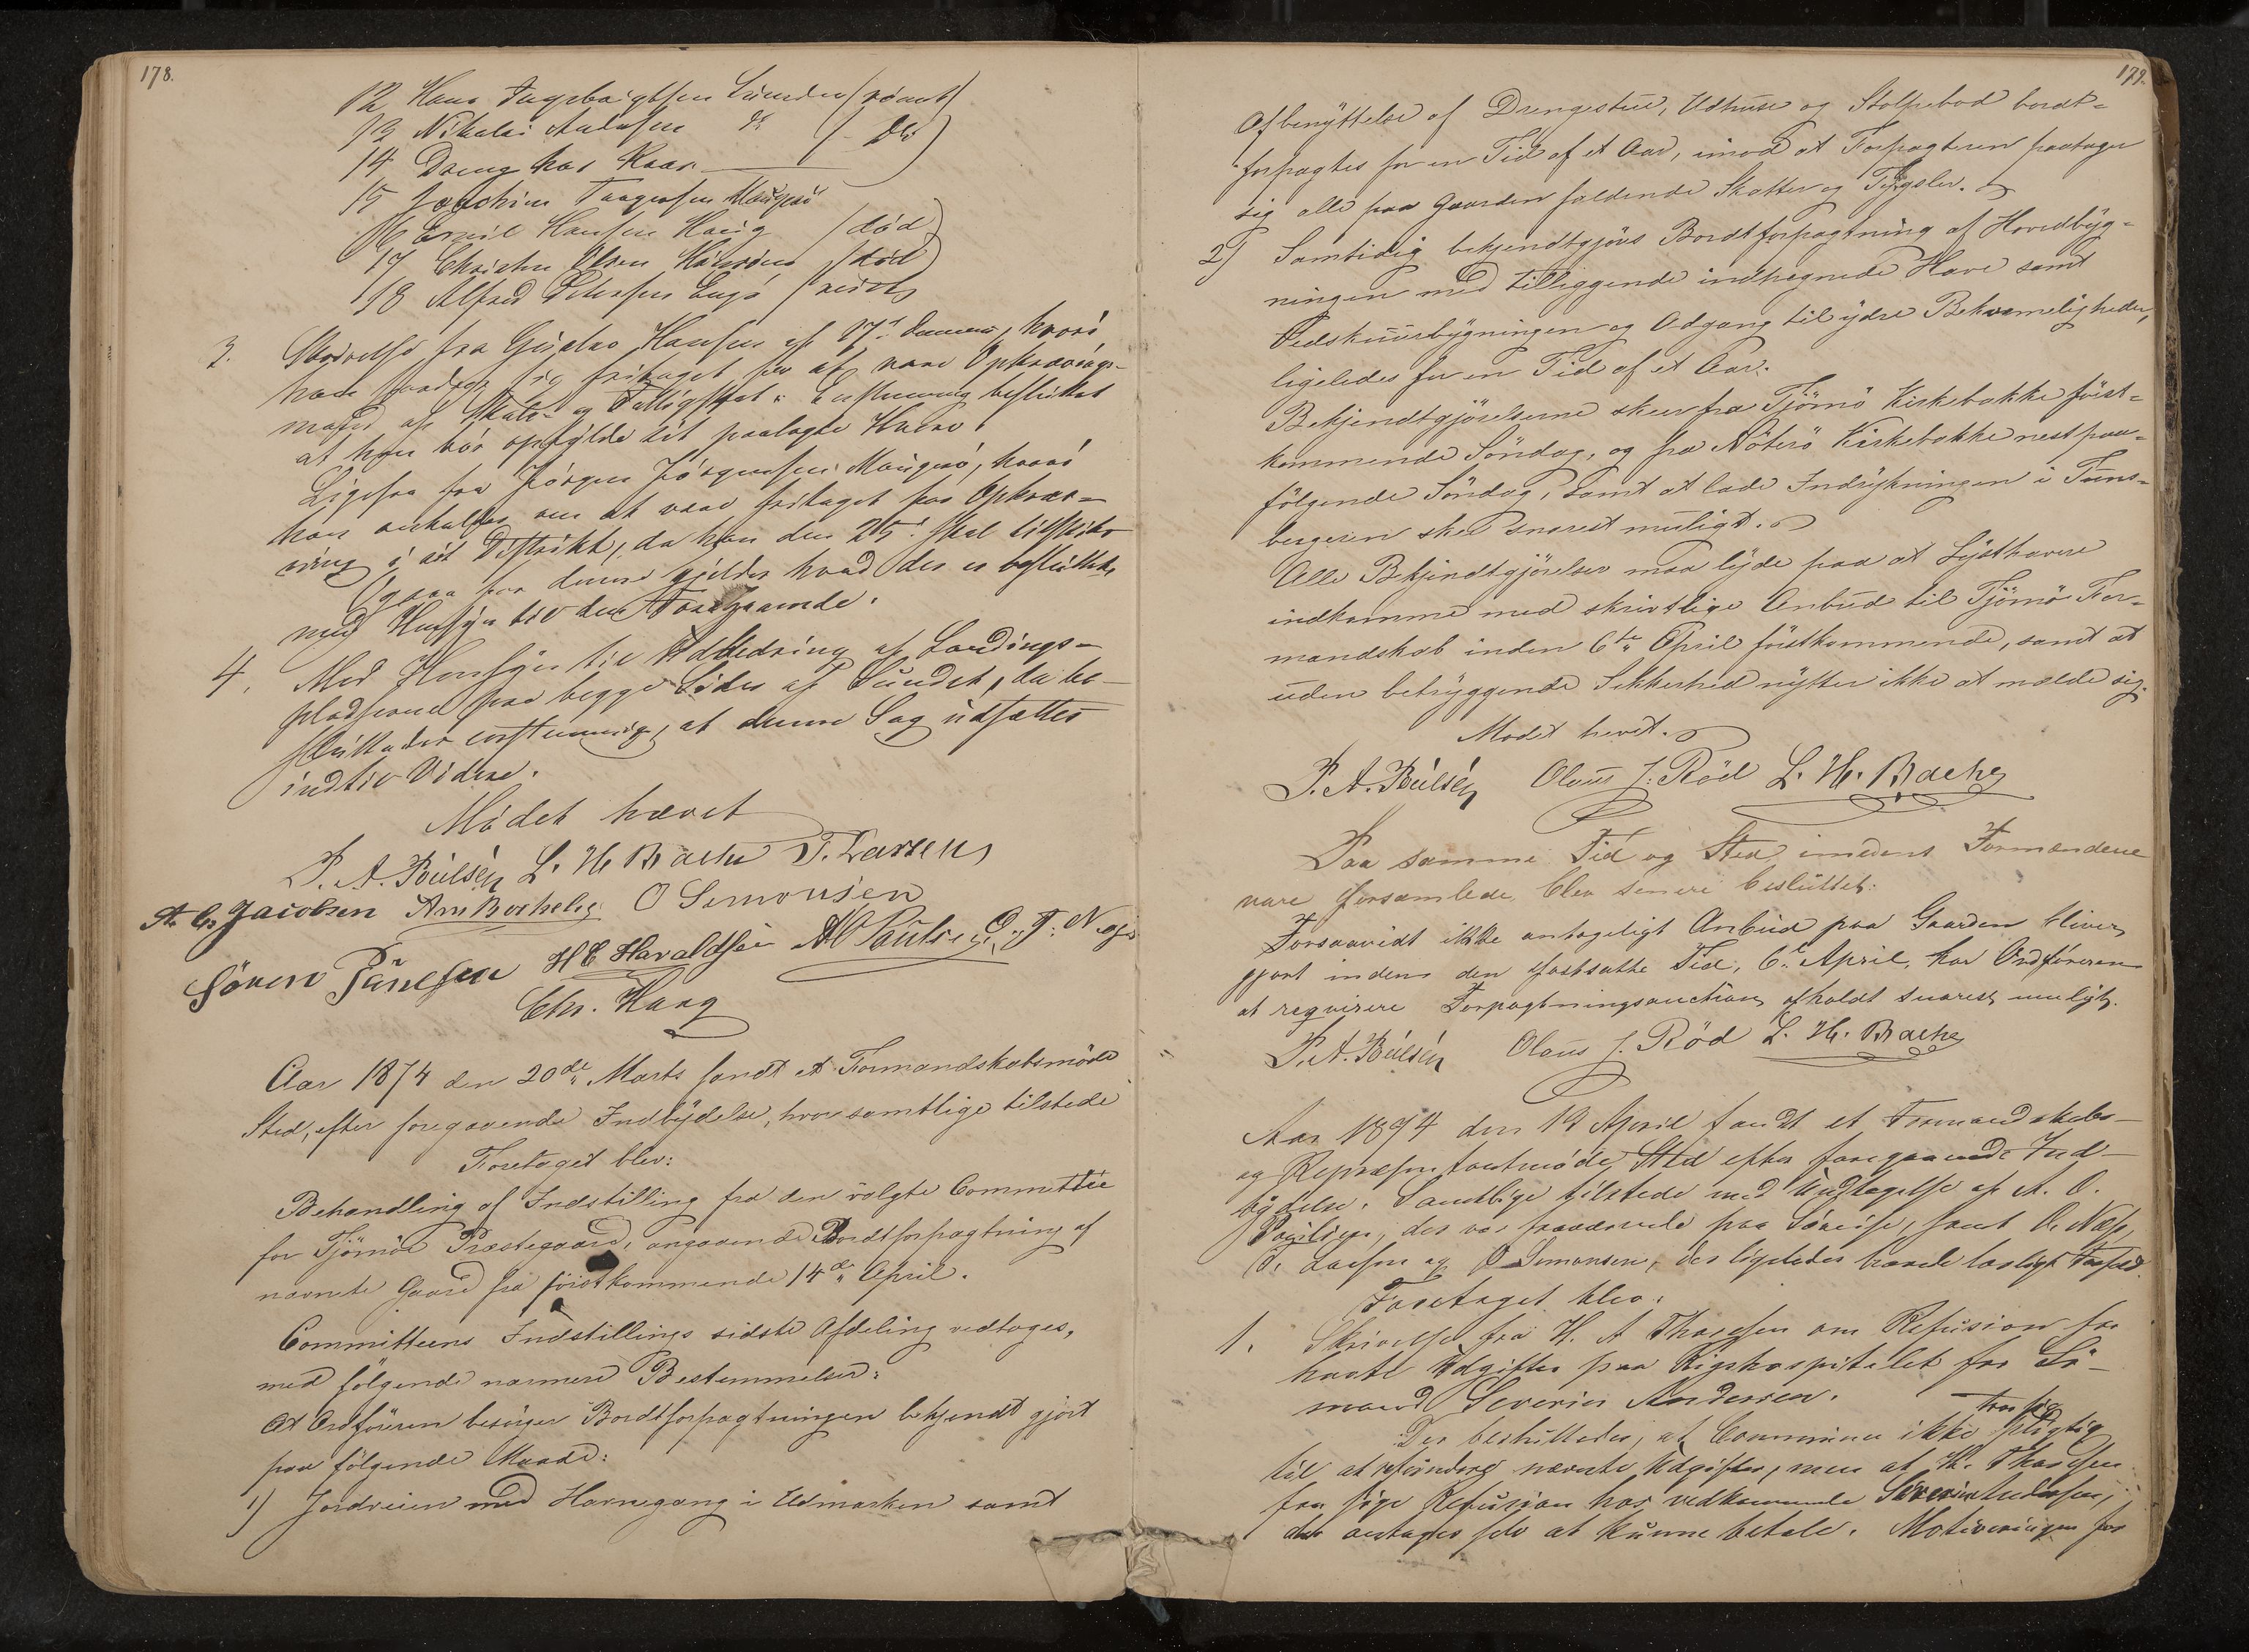 178.
12 Hans Ingebrigtsen Sunden (rømt)
13 Nikolai Andersen d: (- Do)
14 Dreng hos Kaar
15 Joachim Taagesen Maugerö
16 Emil Hansen Haug (död)
17 Christen Olsen (död)
18 Alfred Petersen Engö (reist)
3. Skrivelse fra Gustav Hansen af 17de dennes, hvori
han sig fritaget for at være Opkrævnings-
mand af Skole- og Fattigskat. Enstemmig besluttet
at han bör opfylde sit paalagte Hverv.
Ligesaa fra Jörgen Jörgensen Maugerö, hvori
han anholder om at være fritaget for Opkræv-
ning i sit Distrikt, da han den 25de skal tilskibs
Ogsaa for denne gjelder hvad der er besluttet
med Hensyn til den Foregaaende.
4. Med Hensyn til Udbedring af Landings-
pladserne paa begge Sider af Sundet, da be-
sluttedes enstemmig, at denne Sag udsættes
indtil Videre.
Mödet hævet
P. A. Poulsén L. H. Bache T. Larsen
A. C. Jacobsen Am Bacheley O Simonsen
Sören Paulsen H C Haraldsen A O Paulsen O. T. Næs
Chr. Haag
Aar 1874 den 20de Marts fandt et Formandskabsmöde
Sted, efter foregaaende Indbydelse, hvor samtlige tilstede
Foretaget blev:
Behandling af Indstilling fra den valgte Committee
for Tjömöe Præstegaard, angaaende Bordtforpagtning af
nævnte Gaard fra förstkommende 14de April.
Committeens Indstillings sidste Afdeling vedtoges,
med fölgende nærmere Bestemmelser:
At Ordföreren besörger Bordtforpagtningen bekjendtgjort
paa fölgende Maade:
1) Jordveien med Havnegang i Udmarken samt
179.
Afbenyttelse af Drengestue, Udhuse og Stolpebod bordt-
forpagtes for en Tid af et Aar, imod at Forpagteren paatager
sig alle paa Gaarden faldende Skatter og Tyngsler.
2) Samtidig bekjendtgjöres Bordtforpagtning af Hovedbyg-
ningen med tilliggende indhegnede Have samt
Vedskuurbygningen og Adgang til ydre Bekvemmeligheder,
ligeledes for en Tid af et Aar.
Bekjendtgjörelserne skeer fra Tjömö Kirkebakke förist-
kommende Söndag, og fra Nöterö Kirkebakke nestpaa-
fölgende Söndag, samt at lade Indrykningen i Tuns-
bergeren skee snarest muligt.
Alle Bekjendtgjörelser maa lyde paa at Lysthavere
indkomme med skrivtlige Anbud til Tjömö For-
mandskab inden 6te April förstkommende, samt at
uden betryggende Sikkerhed nytter ikke at melde sig.
Mödet hevet.
P. A. Poulsén Olaus J. Röd L. H. Bache
Paa samme Tid og Sted imedens Formændene
vare forsamlede, blev senere besluttet:
Forsaavidt ikke antageligt Anbud paa Gaarden bliver
gjort inden den fastsatte Tid, 6te April, har Ordföreren
at reqvirere Forpagtningsauction afholdt snarest muligt.
P. A. Poulsén Olaus J. Röd L. H. Bache
Aar 1874 den 19 April fandt et Formandskabs-
og Repræsentantmöde Sted efter foregaaende Ind-
bydelse. Samtlige tilstede med Undtagelse af A. O.
Paulsen, der var fraværende paa Söreise, samt O. Næs,
T. Larsen og O Simonsen, der ligeledes havde lovligt Forfald.
Foretaget blev:
1. Skrivelse fra H. A Thoresen om Refusion for
havte Udgifter paa Rigshospitalet for Sö-
mand Severin Andersen.
Der besluttedes, at Communen ikke tror sig pligtig
til at refundere nævnte Udgifter, men at H. Thoresen
faar söge Refusion hos vedkommende Severin Andersen,
der antages selv at kunne betale. Motiveringen for